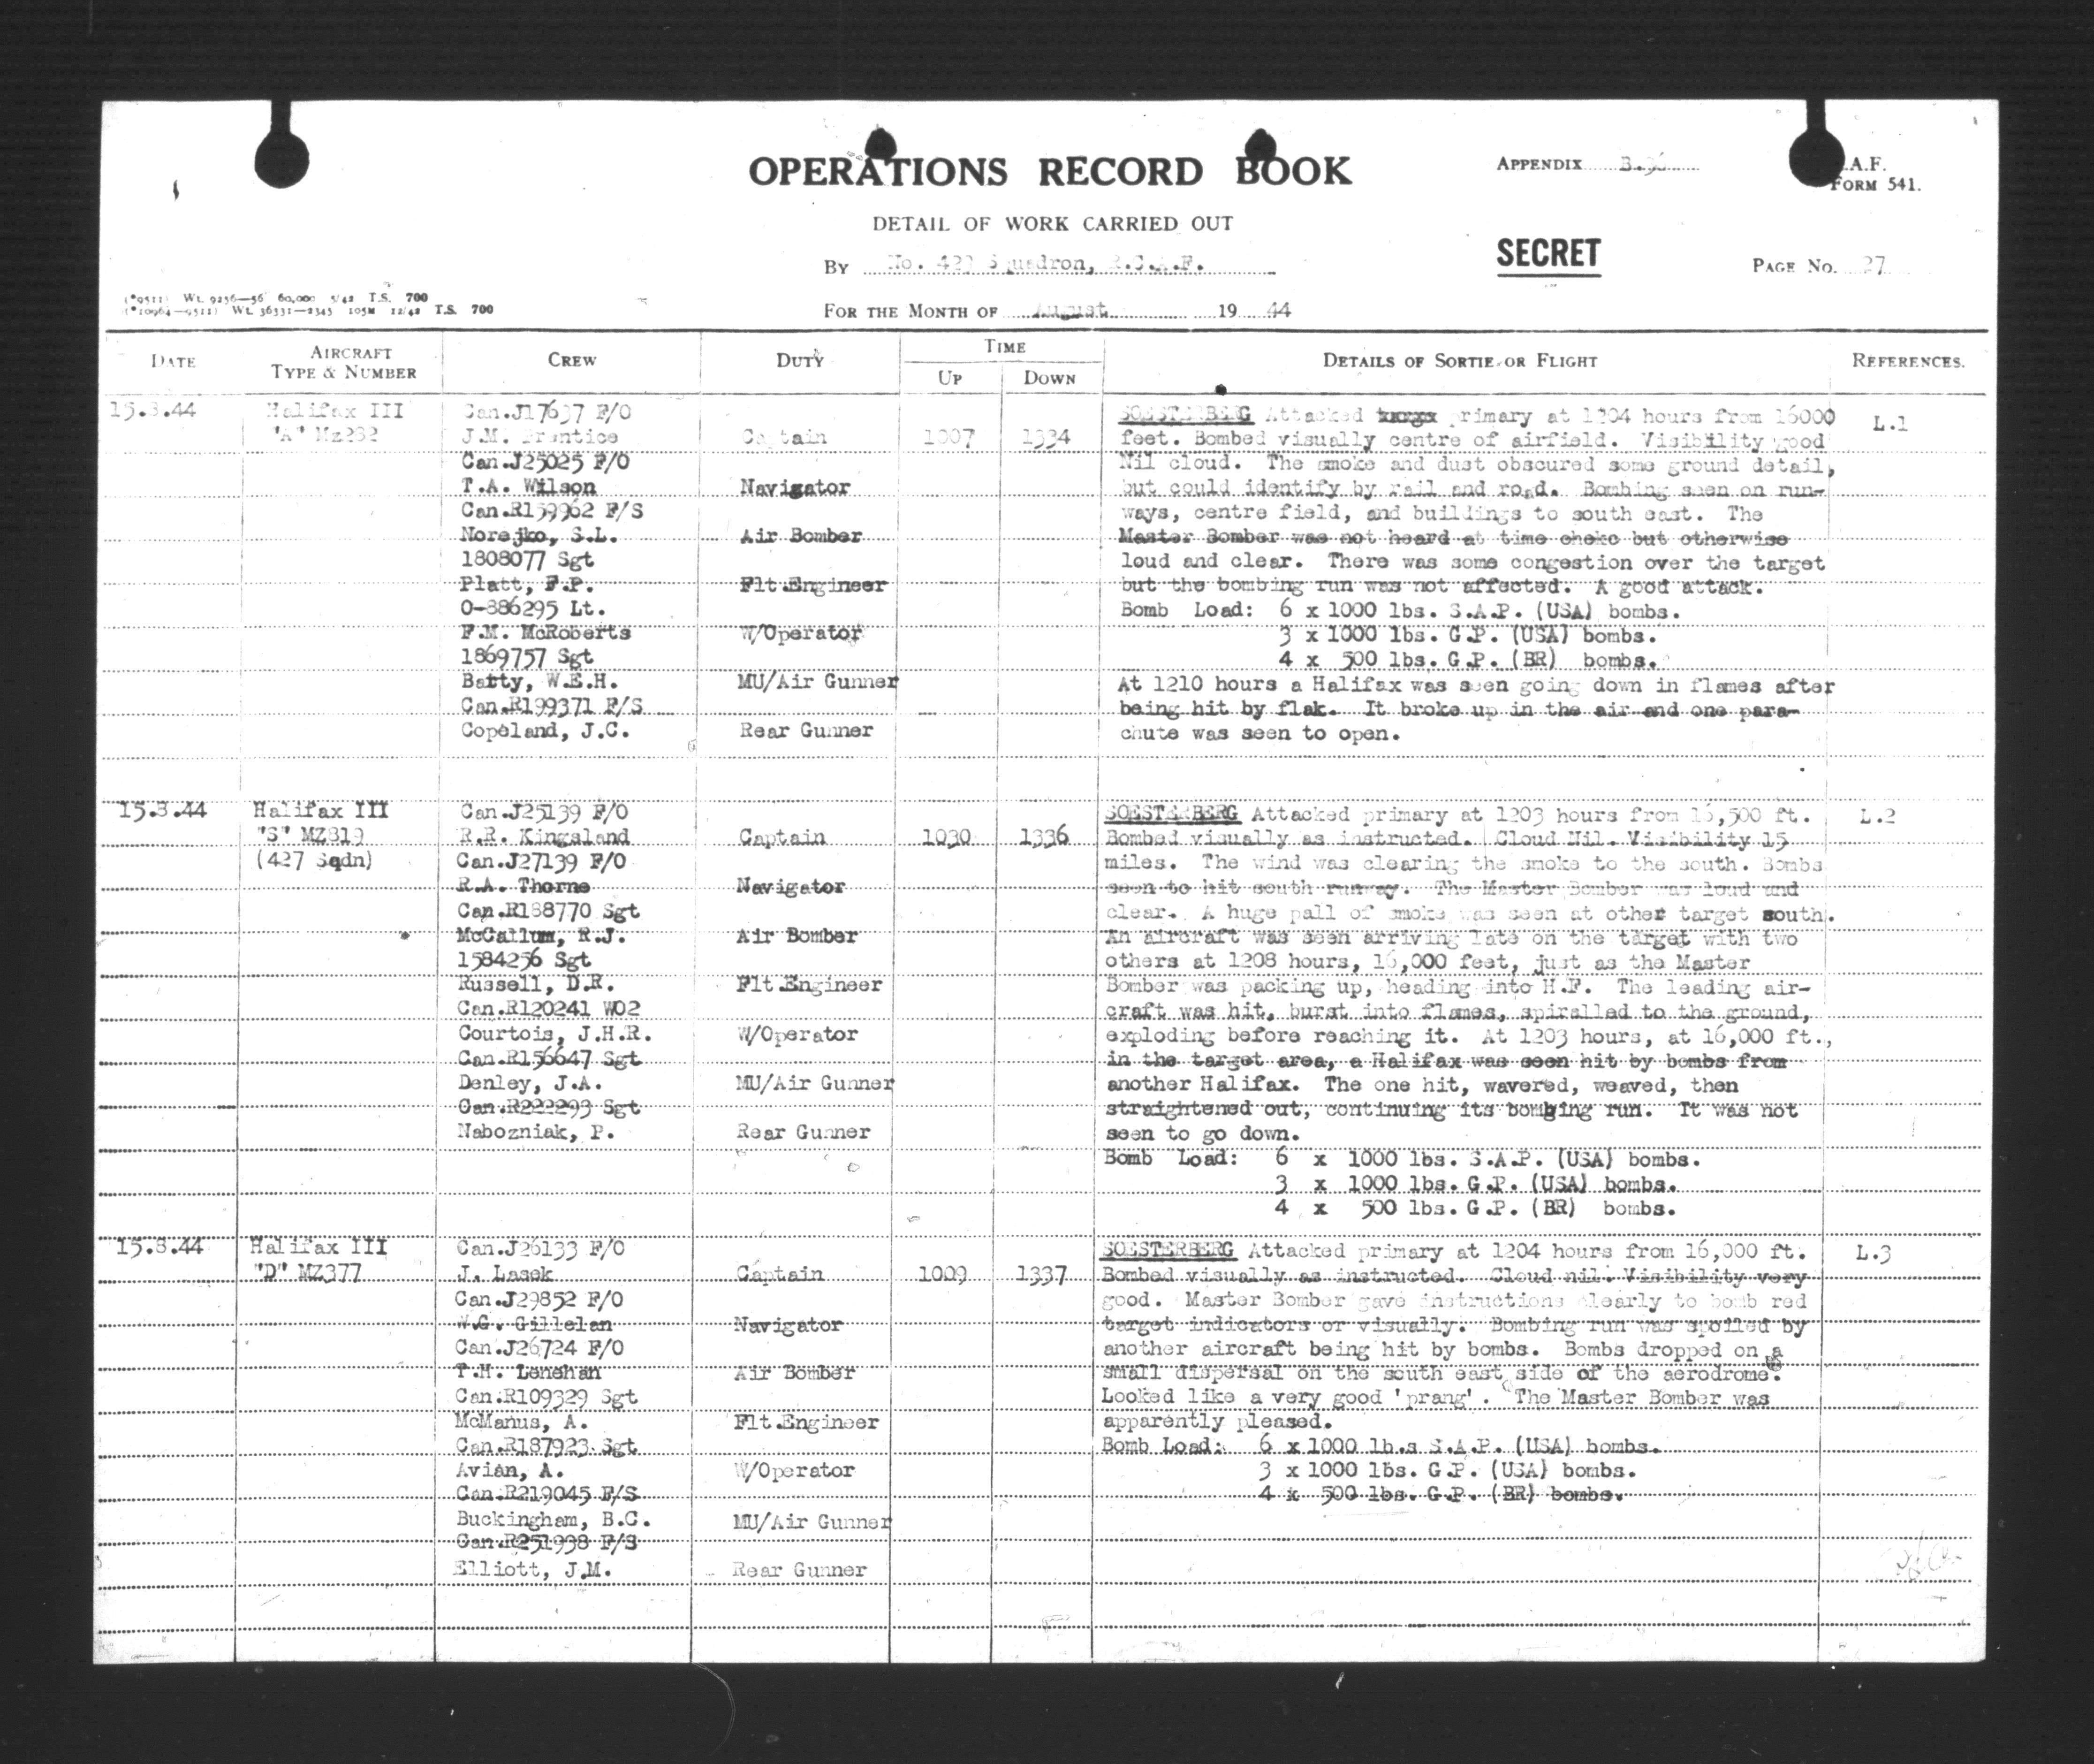 OPERATIONS RECORD BOOK
APPENDIX B.
A.F.
FORM 541.
DETAIL OF WORK CARRIED OUT
SECRET
By No. Squadron, R.C.A.F.
PAGE No. 27
(*9511) Wt. 9256—56 60,000 5/42 T.S. 700
(*10964—9511) Wt. 36331—2345 105M 12/42 T.S. 700
FOR THE MONTH OF August 19 44
DATE
AIRCRAFT
TYPE & NUMBER
CREW
DUTY
TIME
UP
DOWN
DETAILS OF SORTIE OR FLIGHT
REFERENCES.
15.8.44 Halifax III Can.J17637 F/O SOESTERBERG Attacked primary at 1204 hours from 16000 L.1
"A" Mz282 J.M. Prentice Captain 1007 1334 feet. Bombed visually centre of airfield. Visibility good
Can.J25025 F/O Nil cloud. The smoke and dust obscured some ground detail,
T.A. Wilson Navigator but could identify by rail and road. Bombing seen on run-
Can.R159962 F/S ways, centre field, and buildings to south east. The
Norejko, S.L. Air Bomber Master Bomber was not heard at time cheko but otherwise
1808077 Sgt loud and clear. There was some congestion over the target
Platt, F.P. Flt.Engineer but the bombing run was not affected. A good attack.
O-886295 Lt. Bomb Load: 6 x 1000 lbs. S.A.P. (USA) bombs.
F.M. McRoberts W/Operator 3 x 1000 lbs. G.P. (USA) bombs.
1869757 Sgt 4 x 500 lbs. G.P. (BR) bombs.
Batty, W.E.H. MU/Air Gunner At 1210 hours a Halifax was seen going down in flames after
Can.R199371 F/S being hit by flak. It broke up in the air and one para-
Copeland, J.C. Rear Gunner chute was seen to open.
15.8.44 Halifax III Can.J25139 F/O SOESTERBERG Attacked primary at 1203 hours from 16,500 ft. L.2
"S" MZ819 R.R. Kingsland Captain 1030 1336 Bombed visually as instructed. Cloud Nil. Visibility 15
(427 Sqdn) Can.J27139 F/O miles. The wind was clearing the smoke to the south. Bombs
R.A. Thorne Navigator seen to hit south runway. The Master Bomber was loud and
Can.R188770 Sgt clear. A huge pall of smoke was seen at other target south.
McCallum, R.J. Air Bomber An aircraft was seen arriving late on the target with two
1584256 Sgt others at 1208 hours, 16,000 feet, just as the Master
Russell, D.R. Flt.Engineer Bomber was packing up, heading into H.F. The leading air-
Can.R120241 WO2 craft was hit, burst into flames, spiralled to the ground,
Courtois, J.H.R. W/Operator exploding before reaching it. At 1203 hours, at 16,000 ft.,
Can.R156647 Sgt in the target area, a Halifax was seen hit by bombs from
Denley, J.A. MU/Air Gunner another Halifax. The one hit, wavered, weaved, then
Can.R222293 Sgt straightened out, continuing its bombing run. It was not
Nabozniak, P. Rear Gunner seen to go down.
Bomb Load: 6 x 1000 lbs. S.A.P. (USA) bombs.
3 x 1000 lbs. G.P. (USA) bombs.
4 x 500 lbs. G.P. (BR) bombs.
15.8.44 Halifax III Can.J26133 F/O SOESTERBERG Attacked primary at 1204 hours from 16,000 ft. L.3
"D" MZ377 J. Lasek Captain 1009 1337 Bombed visually as instructed. Cloud nil. Visibility very
Can.J29852 F/O good. Master Bomber gave instructions clearly to bomb red
W.G. Gillelan Navigator target indicators or visually. Bombing run was spoiled by
Can.J26724 F/O another aircraft being hit by bombs. Bombs dropped on a
T.H. Lenehan Air Bomber small dispersal on the south east side of the aerodrome.
Can.R109329 Sgt Looked like a very good 'prang'. The Master Bomber was
McManus, A. Flt.Engineer apparently pleased.
Can.R187923 Sgt Bomb Load: 6 x 1000 lb.s S.A.P. (USA) bombs.
Avian, A. W/Operator 3 x 1000 lbs. G.P. (USA) bombs.
Can.R219045 F/S 4 x 500 lbs. G.P. (BR) bombs.
Buckingham, B.C. MU/Air Gunner
Can.R251998 F/S
Elliott, J.M. Rear Gunner